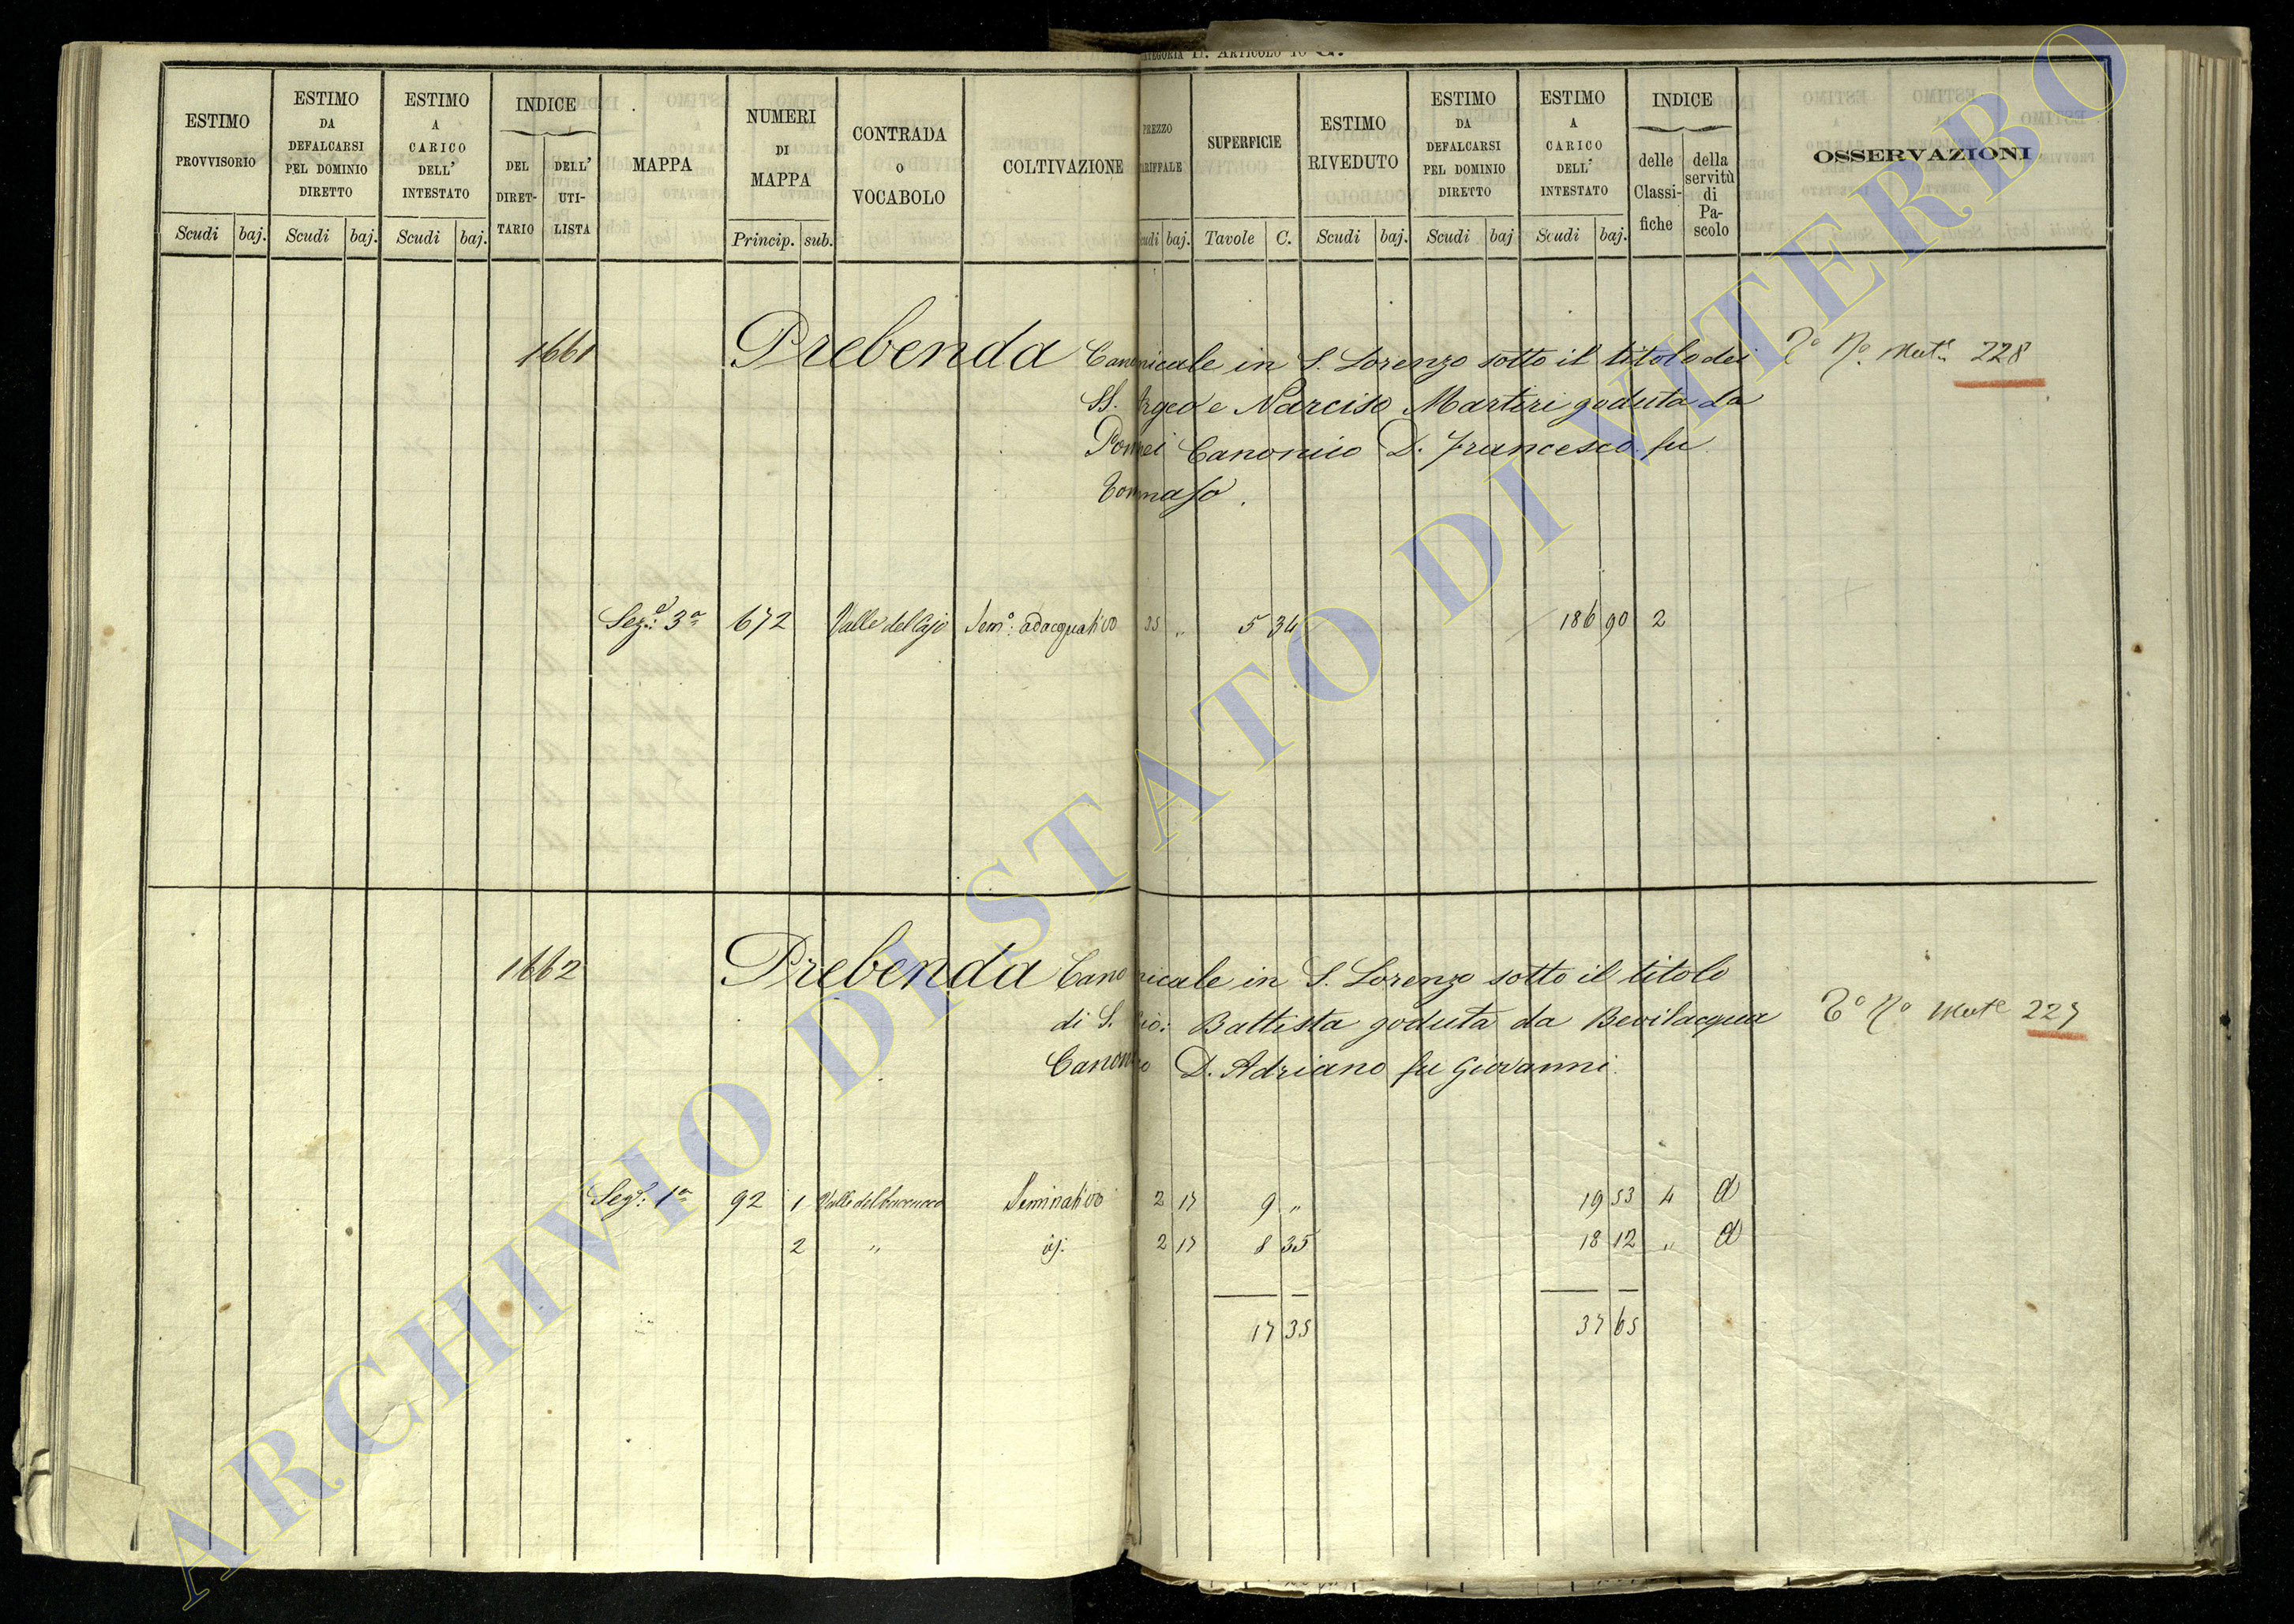 Categoria E. Articolo 10 G.
ESTIMO PROVVISORIO Scudi baj.
ESTIMO DA DEFALCARSI PEL DOMINIO DIRETTO Scudi baj.
ESTIMO A CARICO DELL' INTESTATO Scudi baj.
INDICE DEL DIRET-TARIO DELL' UTI-LISTA
MAPPA
NUMERI DI MAPPA Princip. sub.
CONTRADA o VOCABOLO
COLTIVAZIONE
PREZZO TARIFFALE Scudi baj.
SUPERFICIE Tavole C.
ESTIMO RIVEDUTO Scudi baj.
ESTIMO DA DEFALCARSI PEL DOMINIO DIRETTO Scudi baj
ESTIMO A CARICO DELL' INTESTATO Scudi baj.
INDICE delle Classi-fiche della servitù di Pa-scolo
OSSERVAZIONI
1661 Prebenda Canonicale in S. Lorenzo sotto il titolo dei 228
SS. Argeo e Narciso Martiri goduta da
Canonico D. Francesco fu
Tommaso.
Sez.e 3a 672 Valle del Cajo Sem.o adacquativo 35 „ 5 34 186 90 2
1662 Prebenda Canonicale in S. Lorenzo sotto il titolo
di S. Gio: Battista goduta da Bevilacqua 227
Canonico D. Adriano fu Giovanni.
Sez.e 1a 92 1 Seminativo 2 17 9 „ 19 53 4 d
2 „ 2 17 8 35 18 12 „ d
17 35 37 65
ARCHIVIO DI STATO DI VITERBO